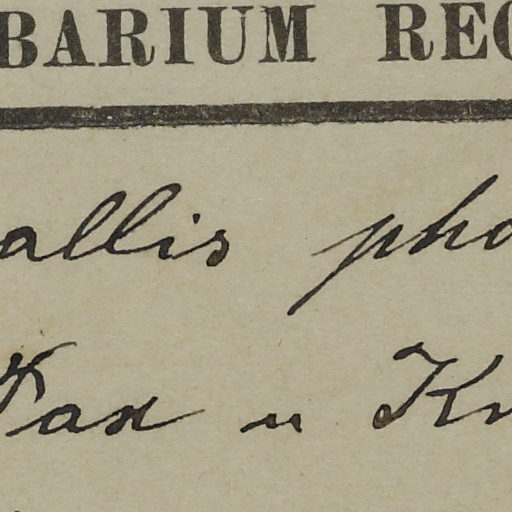 BARIUM REG
allis pho
Pax u Kn